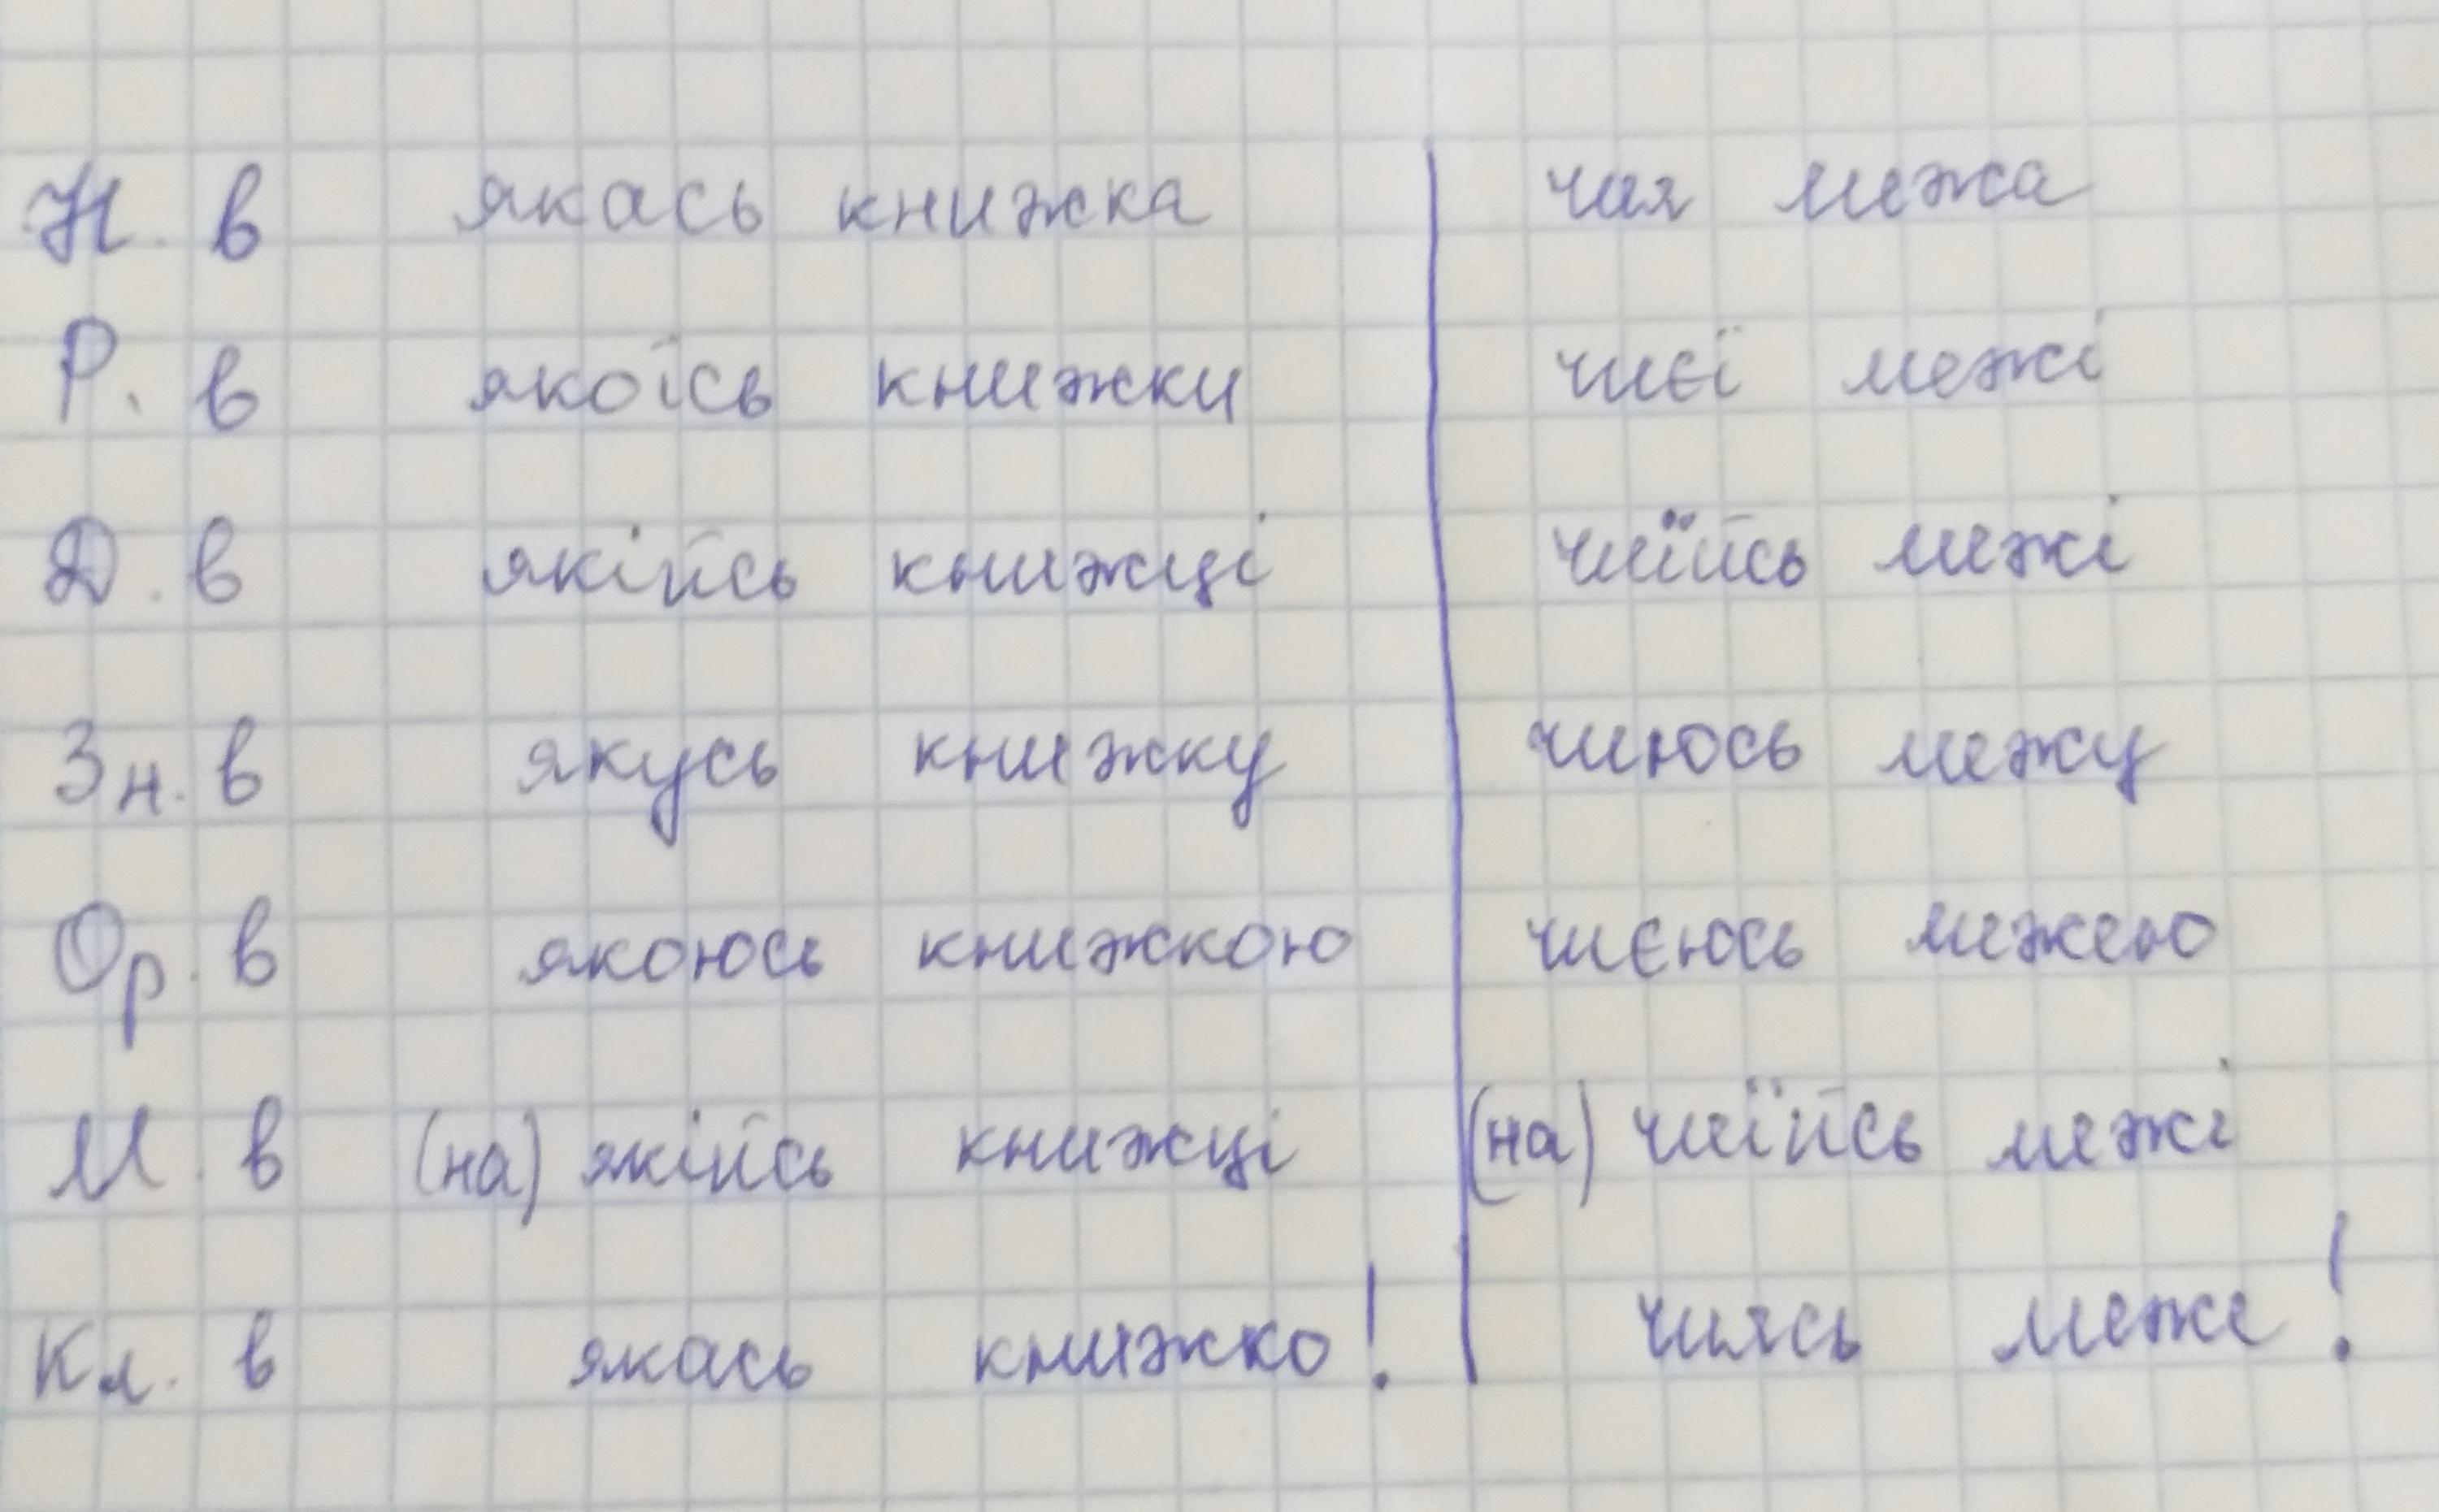 Н. в якась книжка чия межа
Р. в якоїсь книжки чиєї межі
Д. в якійсь книжці чиїйсь межі
Зн. в якусь книжку чиюсь межу
Ор. в якоюсь книжкою чиєюсь межею
М. в (на) якійсь книжці (на) чиїйсь межі
Кл. в якась книжко! чиясь меже!